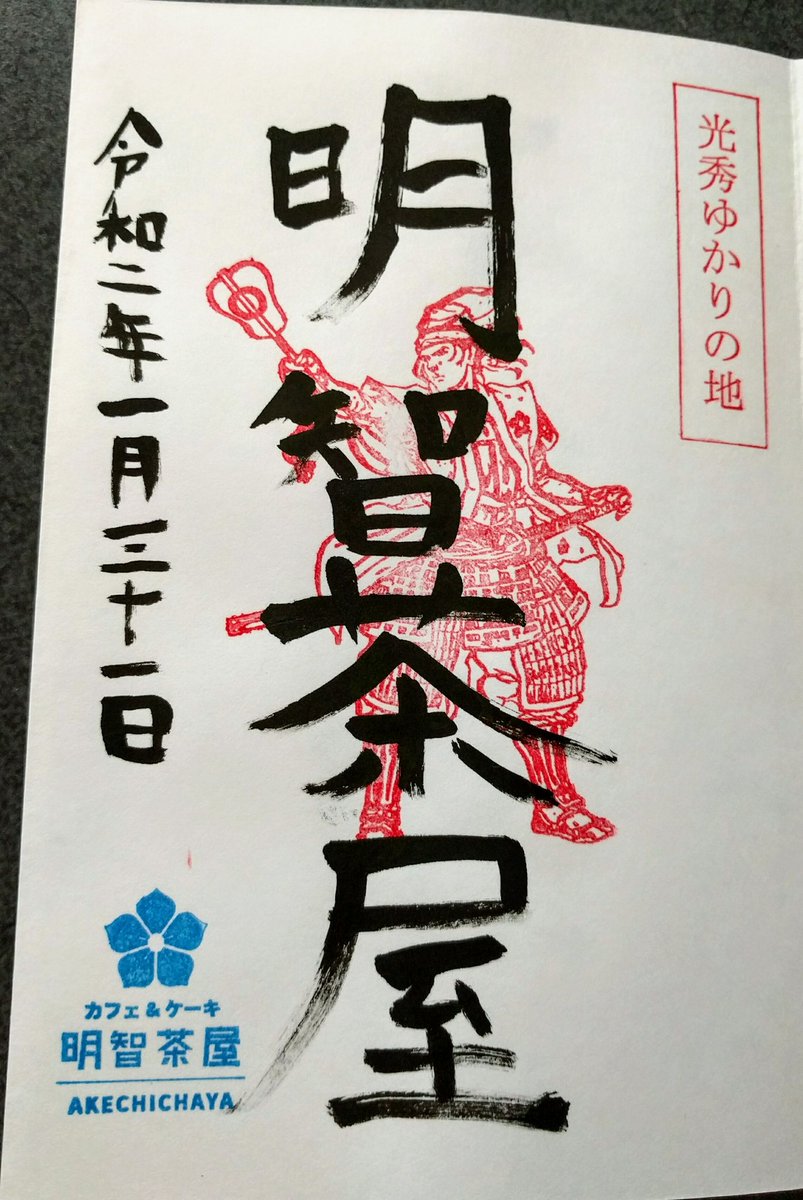 光秀ゆかりの地
明智茶屋
令和二年一月三十一日
カフェ&ケーキ
明智茶屋
AKECHICHAYA